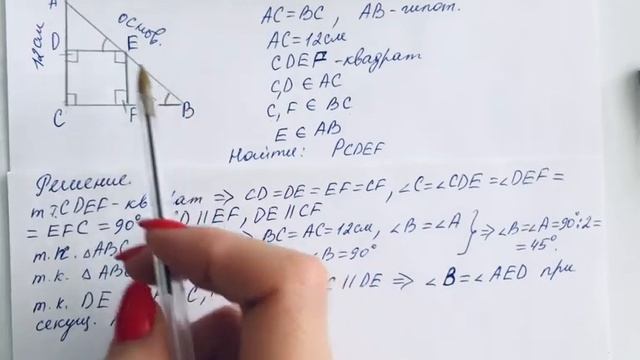 A
12см
D
основ.
E
C
F
B
AC=BC, AB-гипот.
AC=12см
CDEF-квадрат
C,D ∈ AC
C,F ∈ BC
E ∈ AB
Найти: PCDEF
Решение.
т.к. CDEF- ⇒ CD=DE=EF=CF, ∠C=∠CDE=∠DEF=
= EFC = 90° CD∥EF, DE∥CF
т.к. △ABC BC=AC=12см, ∠B=∠A } ⇒∠B=∠A=90°:2=
т.к. △ABC ∠B=90° =45°.
т.к. DE C∥DE ⇒ ∠B=∠AED при
секущ.